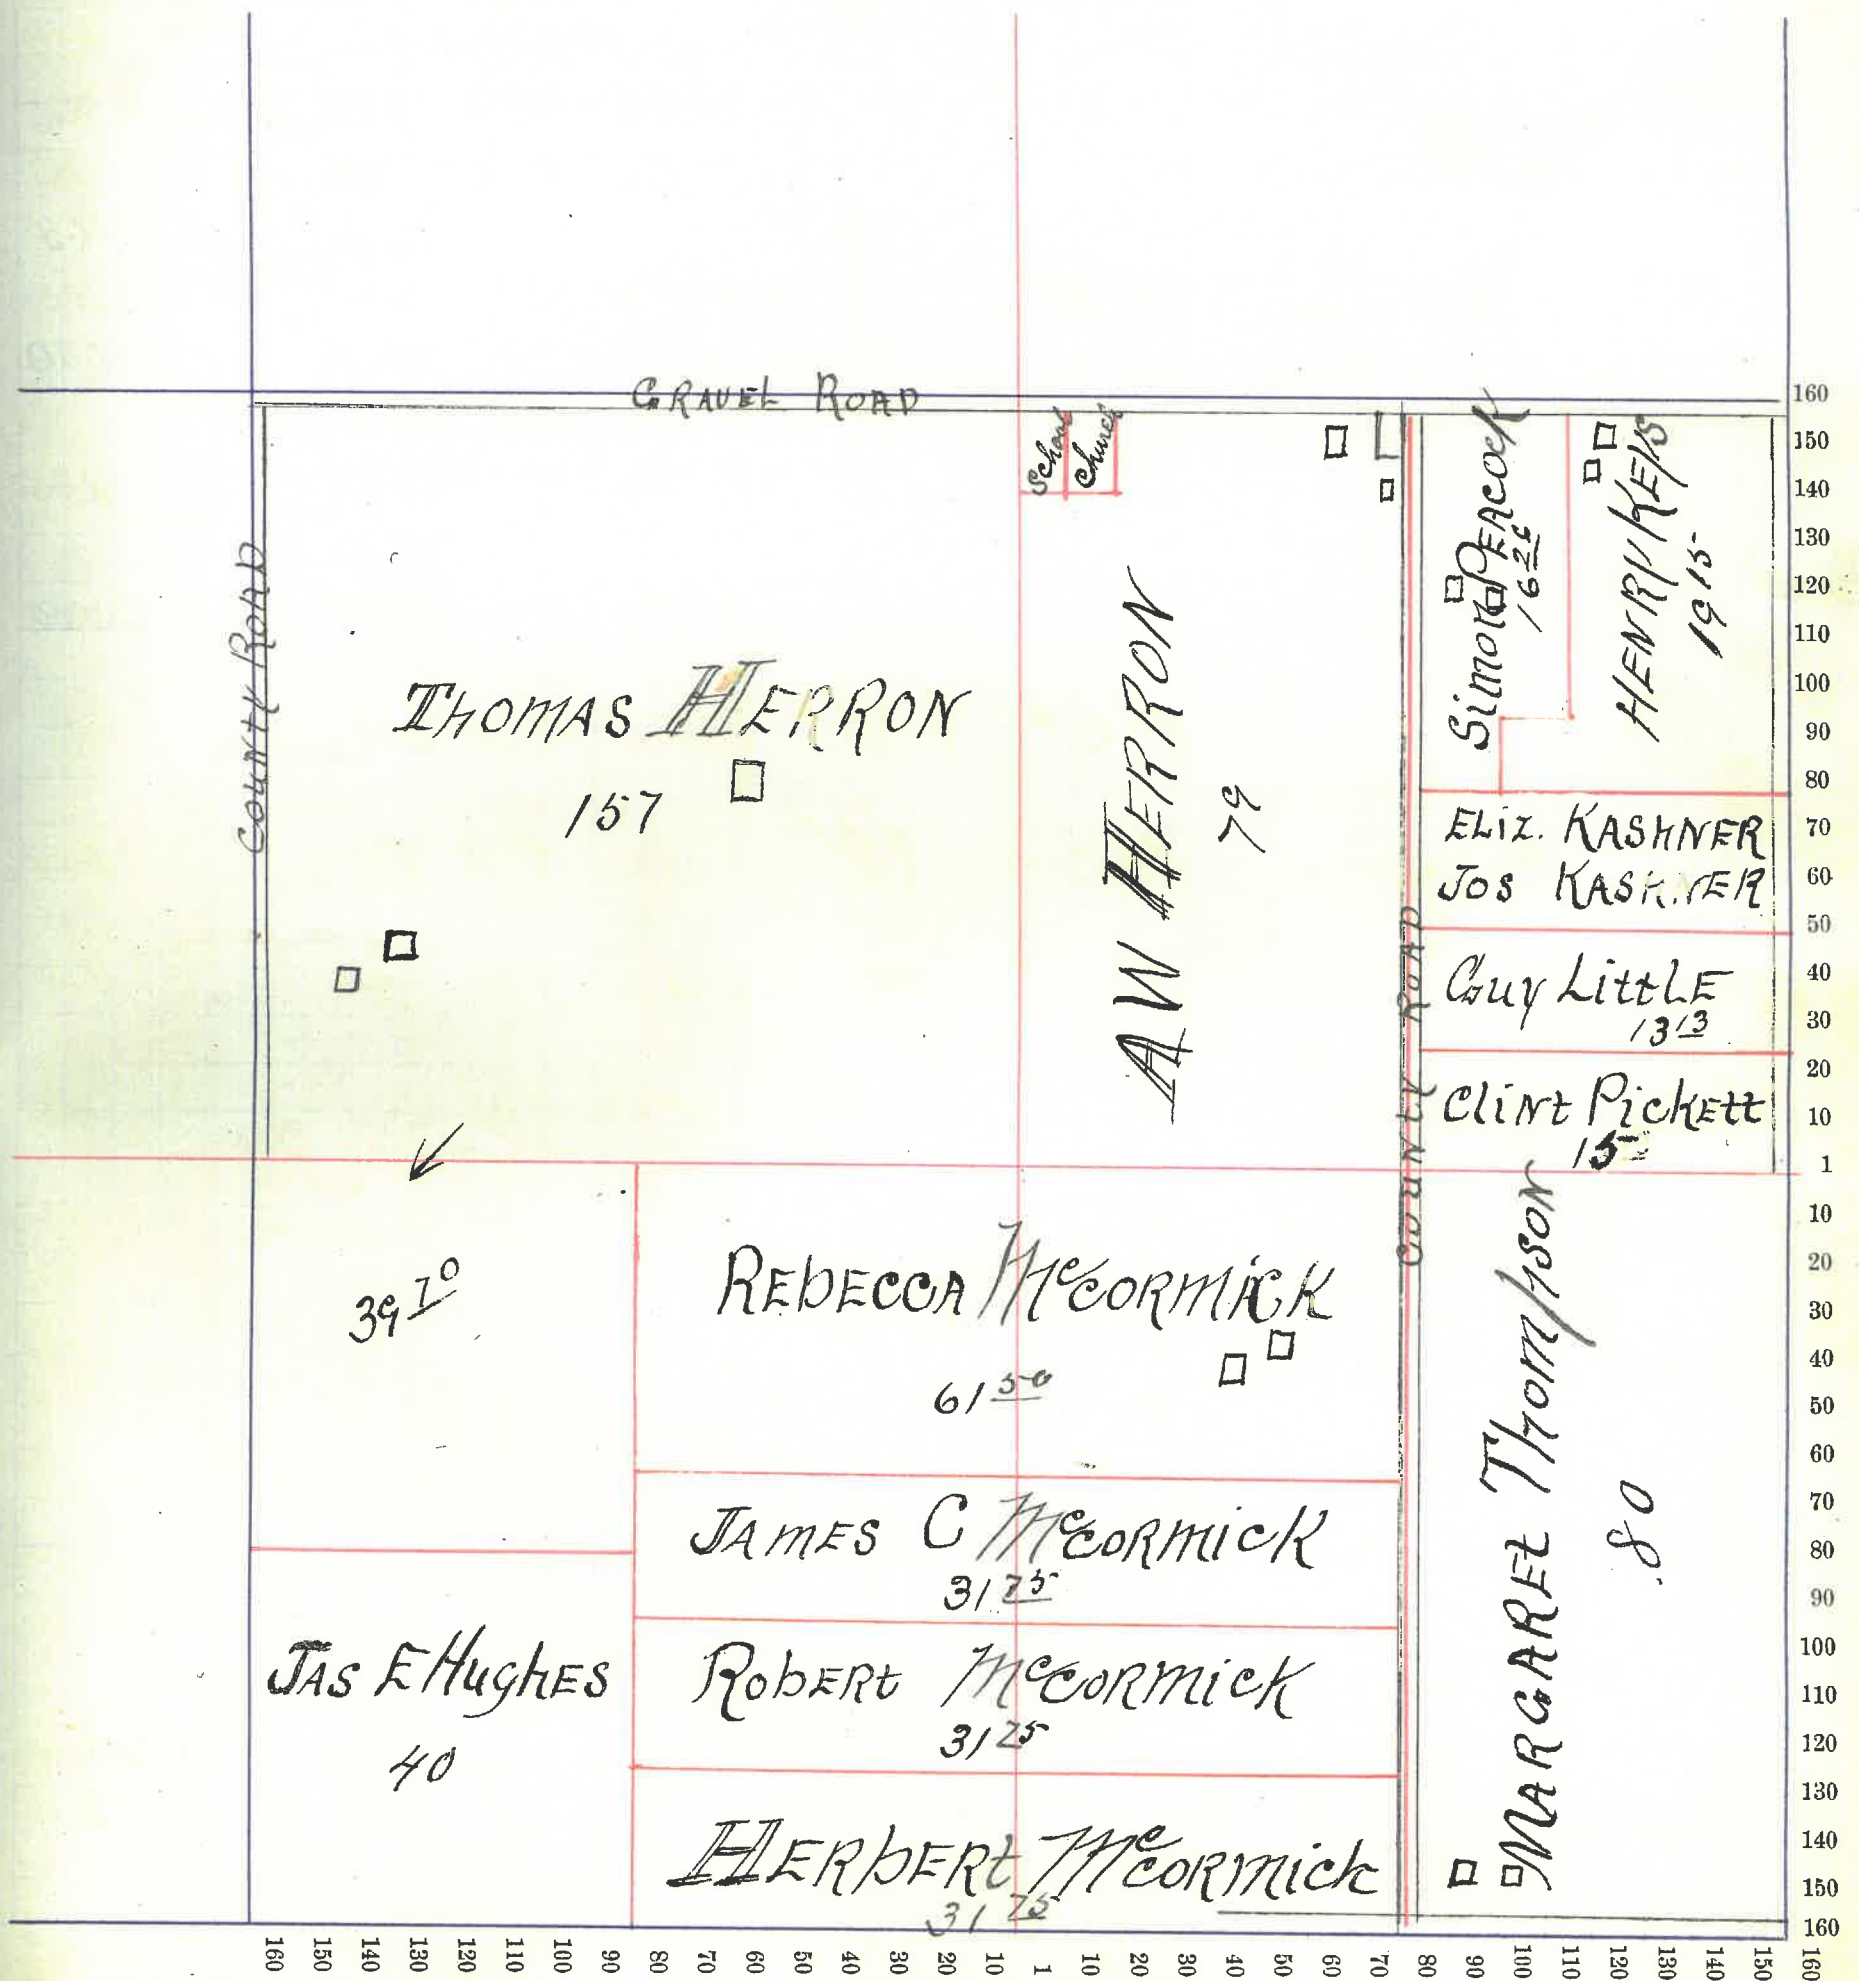 GRAVEL ROAD
School
Church
COUNTY ROAD
THOMAS HERRON
157
AW HERRON
79
Simon PEACOCK
16 26
HENRY KEYS
19 15
ELIZ. KASHNER
JOS KASHNER
Guy LittLE
13 13
CliNt PickEtt
15
COUNTY ROAD
39 70
REbECCA McCORMICK
61 50
JAMES C McCORMicK
31 75
RobERt McCORMicK
31 75
HERbERt McCORMick
31 75
JAS E HughES
40
MARGAREt ThompsoN
80
160
150
140
130
120
110
100
90
80
70
60
50
40
30
20
10
1
10
20
30
40
50
60
70
80
90
100
110
120
130
140
150
160
160 150 140 130 120 110 100 90 80 70 60 50 40 30 20 10 1 10 20 30 40 50 60 70 80 90 100 110 120 130 140 150 160